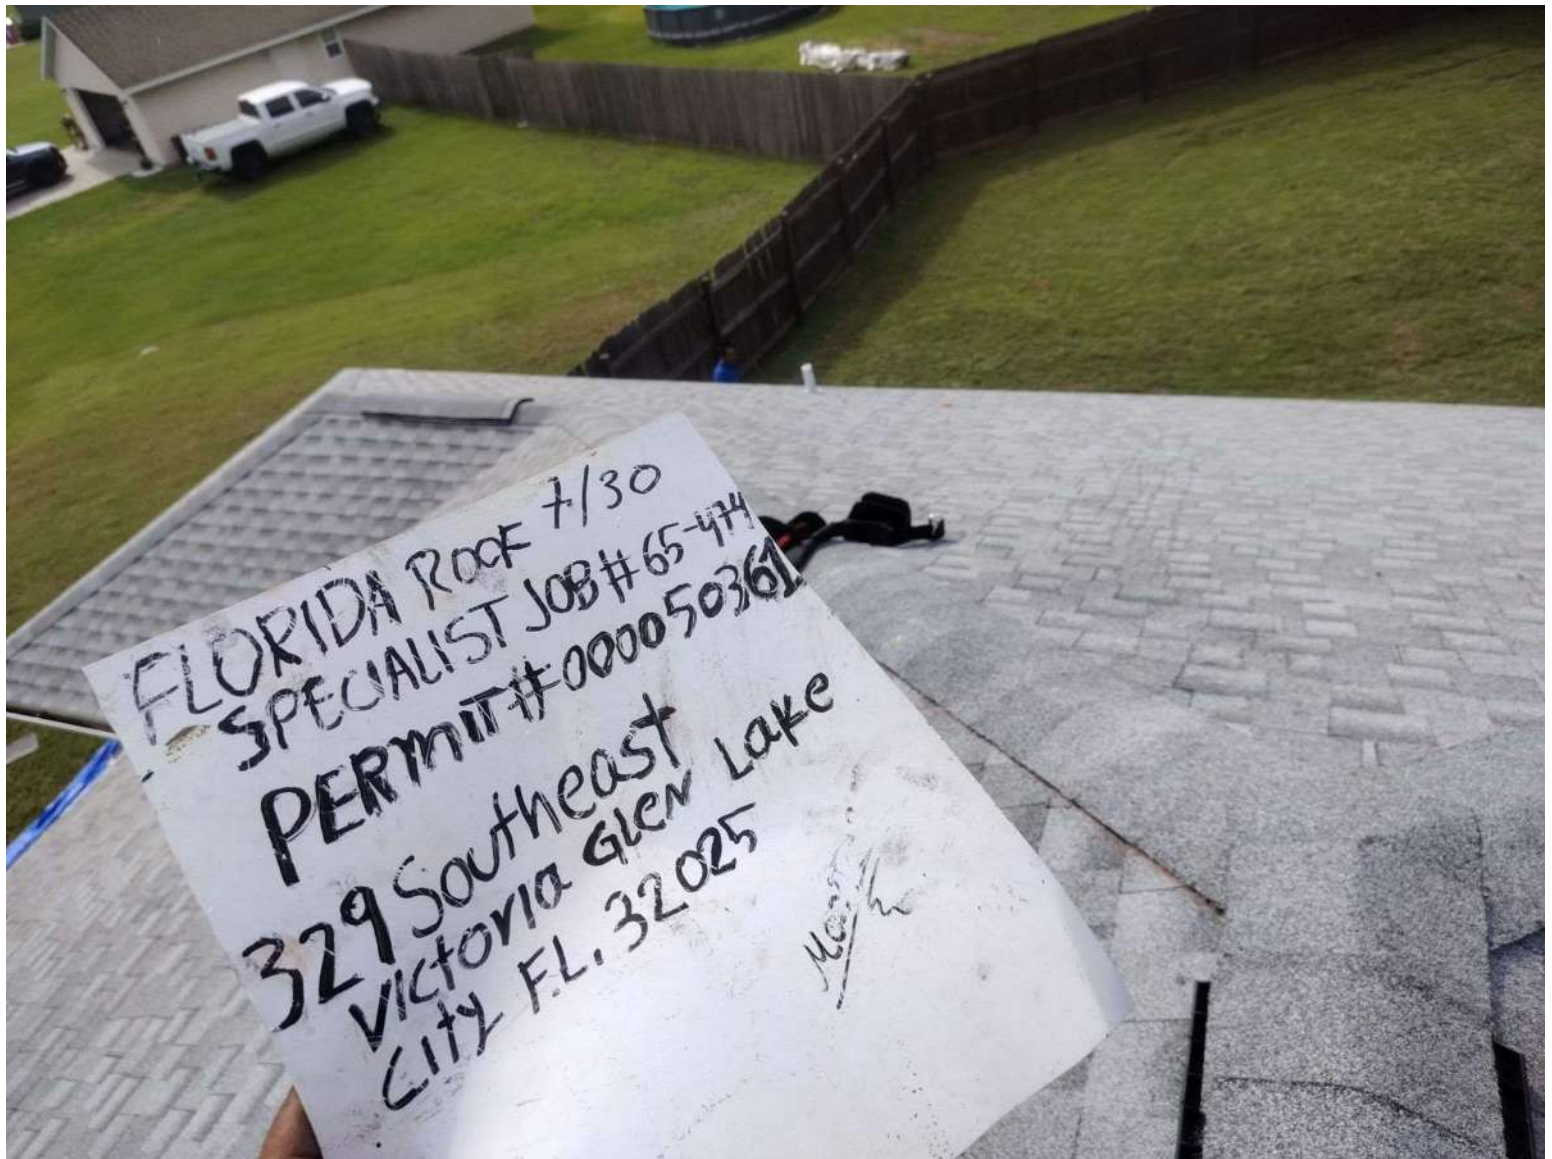 FLORIDA ROOF 7/30
SPECIALIST JOB # 65-474
PERMIT # 0000 50361
329 Southeast
VICTORIA GLEN LAKE
CITY FL. 32025